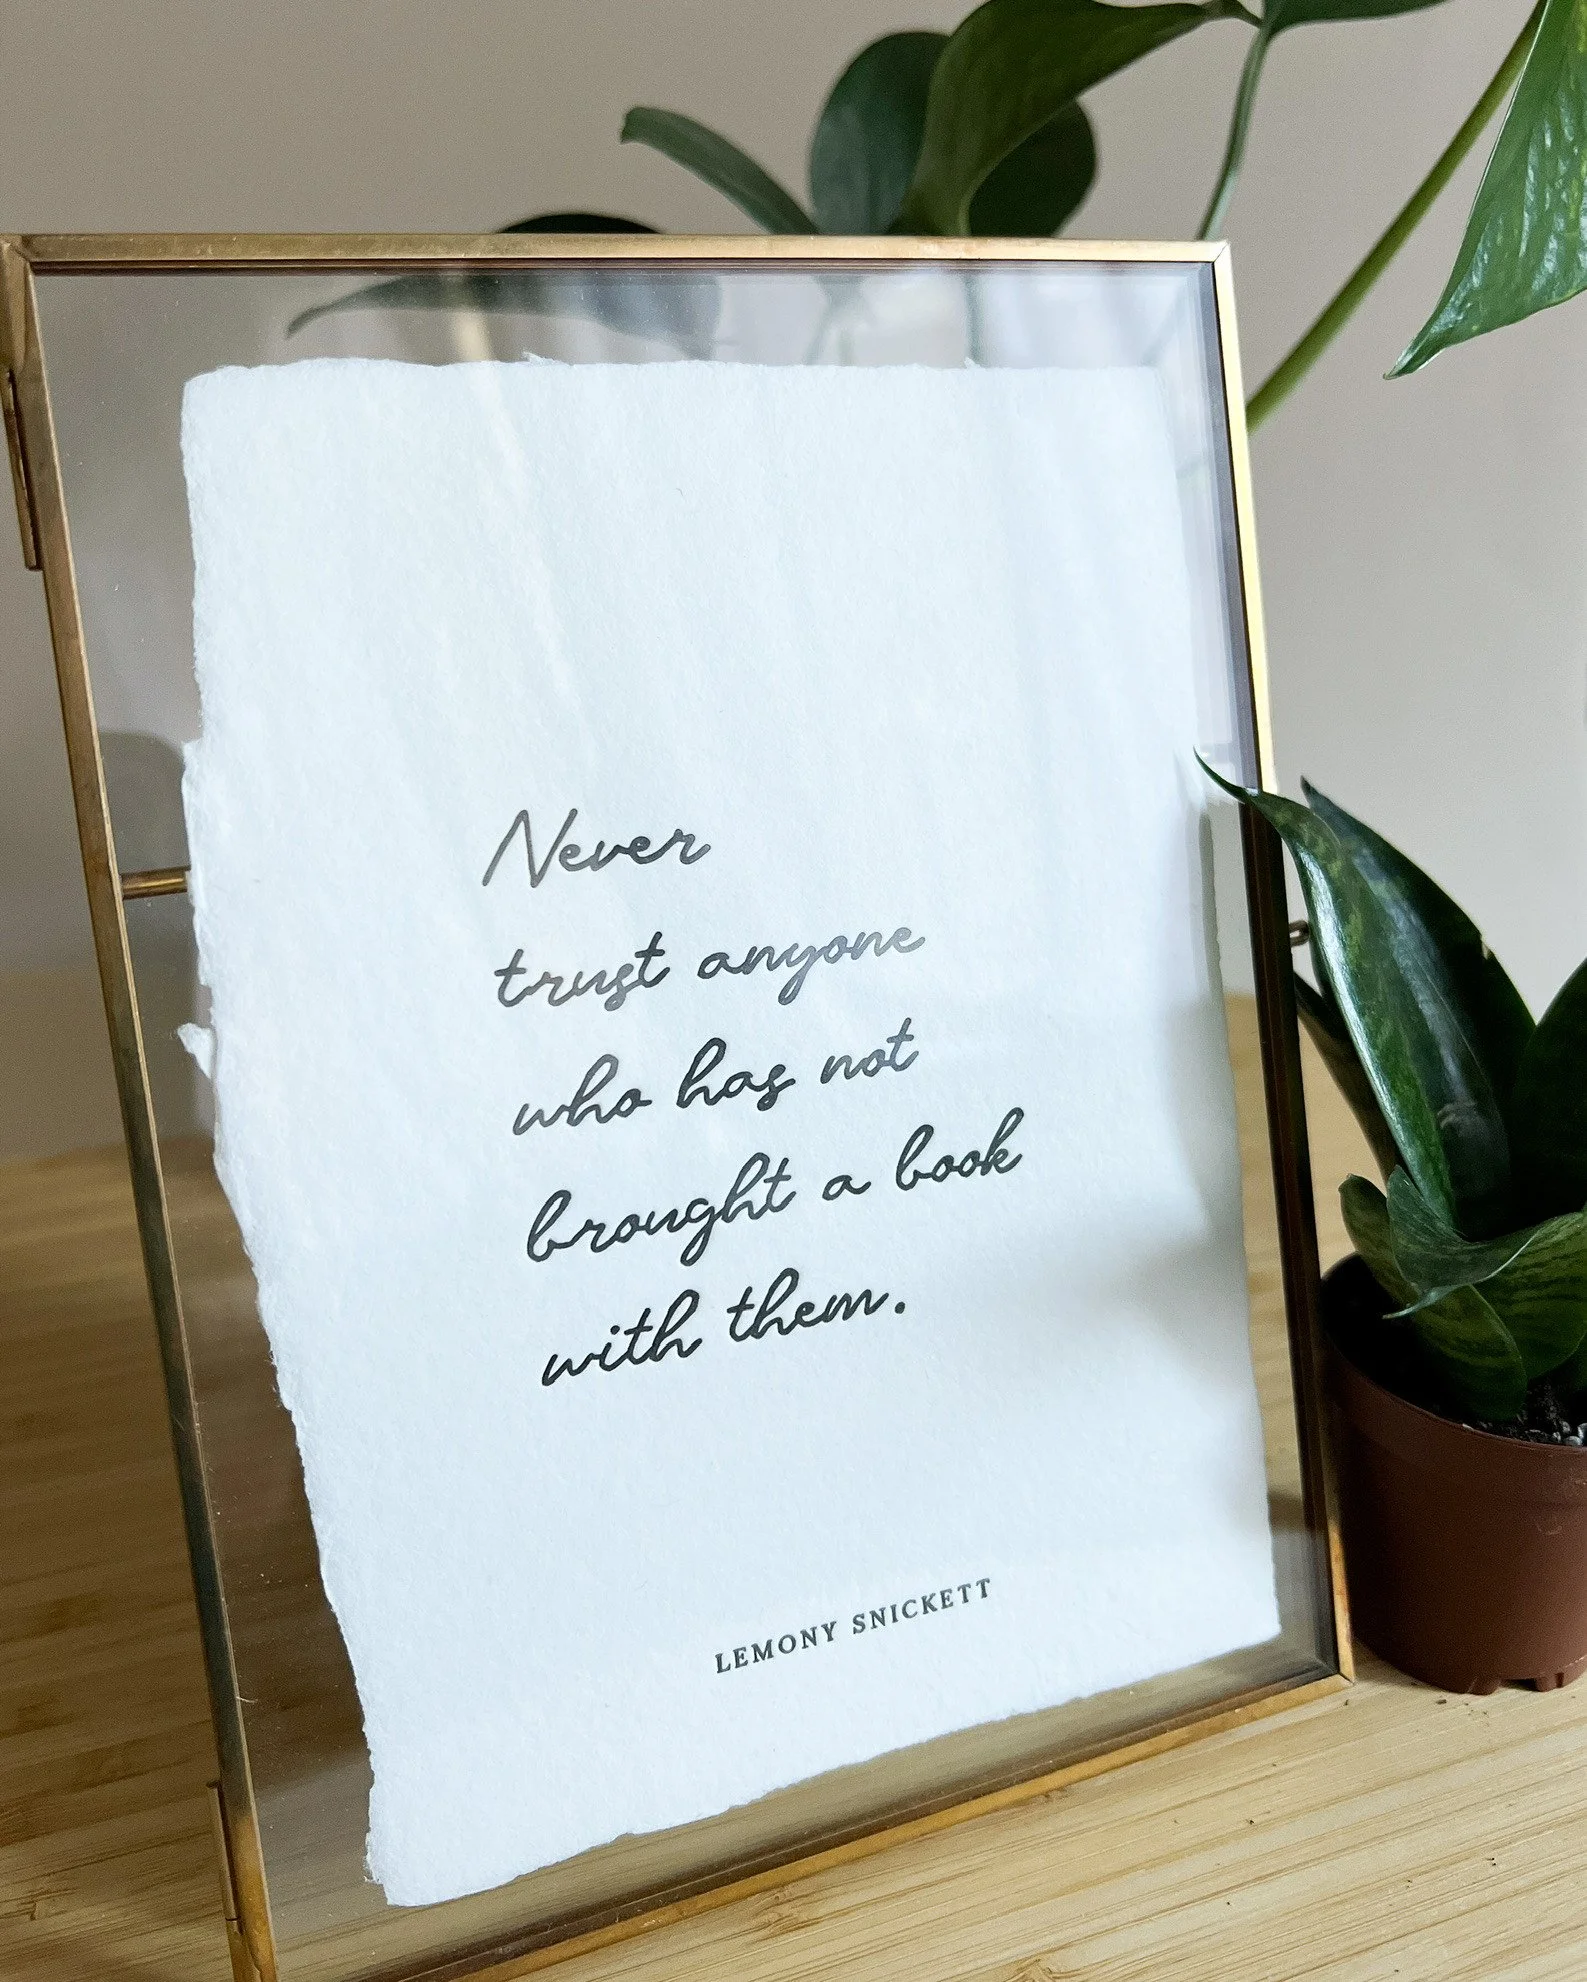 Never
trust anyone
who has not
brought a book
with them.
LEMONY SNICKETT